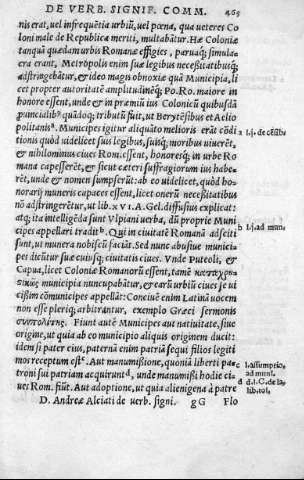 DE VERB. SIGNIF. COMM. 469
nis erat, uel infrequētia urbiū, uel pœna, qua ueteres Co
loni male de Republica meriti, multabātur. Hæ Coloniæ
tanquā quædam urbis Romanæ effigies, paruaq́; simula-
cra erant, Metropolis enim suæ legibus necessitatibusq́;
adstringebātur, & ideo magis obnoxiæ quā Municipia, li
cet propter autoritatē amplitudinēq́; Po. Ro. maiore in
honore essent, unde & in præmiū ius Colonicū quibusdā
prouincialib. quādoq; tributū fuit, ut Berytēsibus et Aelio
politanis. Municipes igitur aliquāto melioris erāt cōdi
tionis quòd uidelicet suis legibus, suisq́; moribus uiuerēt,
& nihilominus ciues Rom. essent, honoresq́; in urbe Ro
mana capesserēt, & sicut cæteri suffragiorum ius habe-
rēt, unde & nomen sumpserūt: ab eo uidelicet, quòd ho-
norarij muneris capaces essent, licet onerū necessitatibus
nō adstringerētur, ut lib. xvi. A. Gel. diffusius explicat:
atq; ita intelligēda sunt Vlpiani uerba, dū proprie Muni
cipes appellari tradit. Qui in ciuitatē Romanā adsciti
sunt, ut munera nobiscū faciāt. Sed nunc abusiue munici-
pes dicūtur suæ cuiusq; ciuitatis ciues. Vnde Puteoli, &
Capua, licet Coloniæ Romanorū essent, tamē καταχρη-
στικῶς municipia nuncupabātur, & earū urbiū ciues se ui
cissim cōmunicipes appellāt: Conciuē enim Latinā uocem
non esse pleriq; arbitrantur, exemplo Græci sermonis
συμπολίτης. Fiunt autē Municipes aut natiuitate, siue
origine, ut quia ab communicipio aliquis originem ducit:
idem si pater eius, paternā enim patriā sequi filios legiti
mos receptum est. Aut manumissione, quoniā liberti pa-
troni sui patriam acquirunt, unde manumissi hodie ci-
ues Rom. fiūt. Aut adoptione, ut quia alienigena à patre
D. Andreæ Alciati de verb. signi. gG Flo
a l.j. de cēsib.
b l.j. ad mun.
c l. assumptio,
ad munl.
d d.l.j. C. de la.
lib. tol.